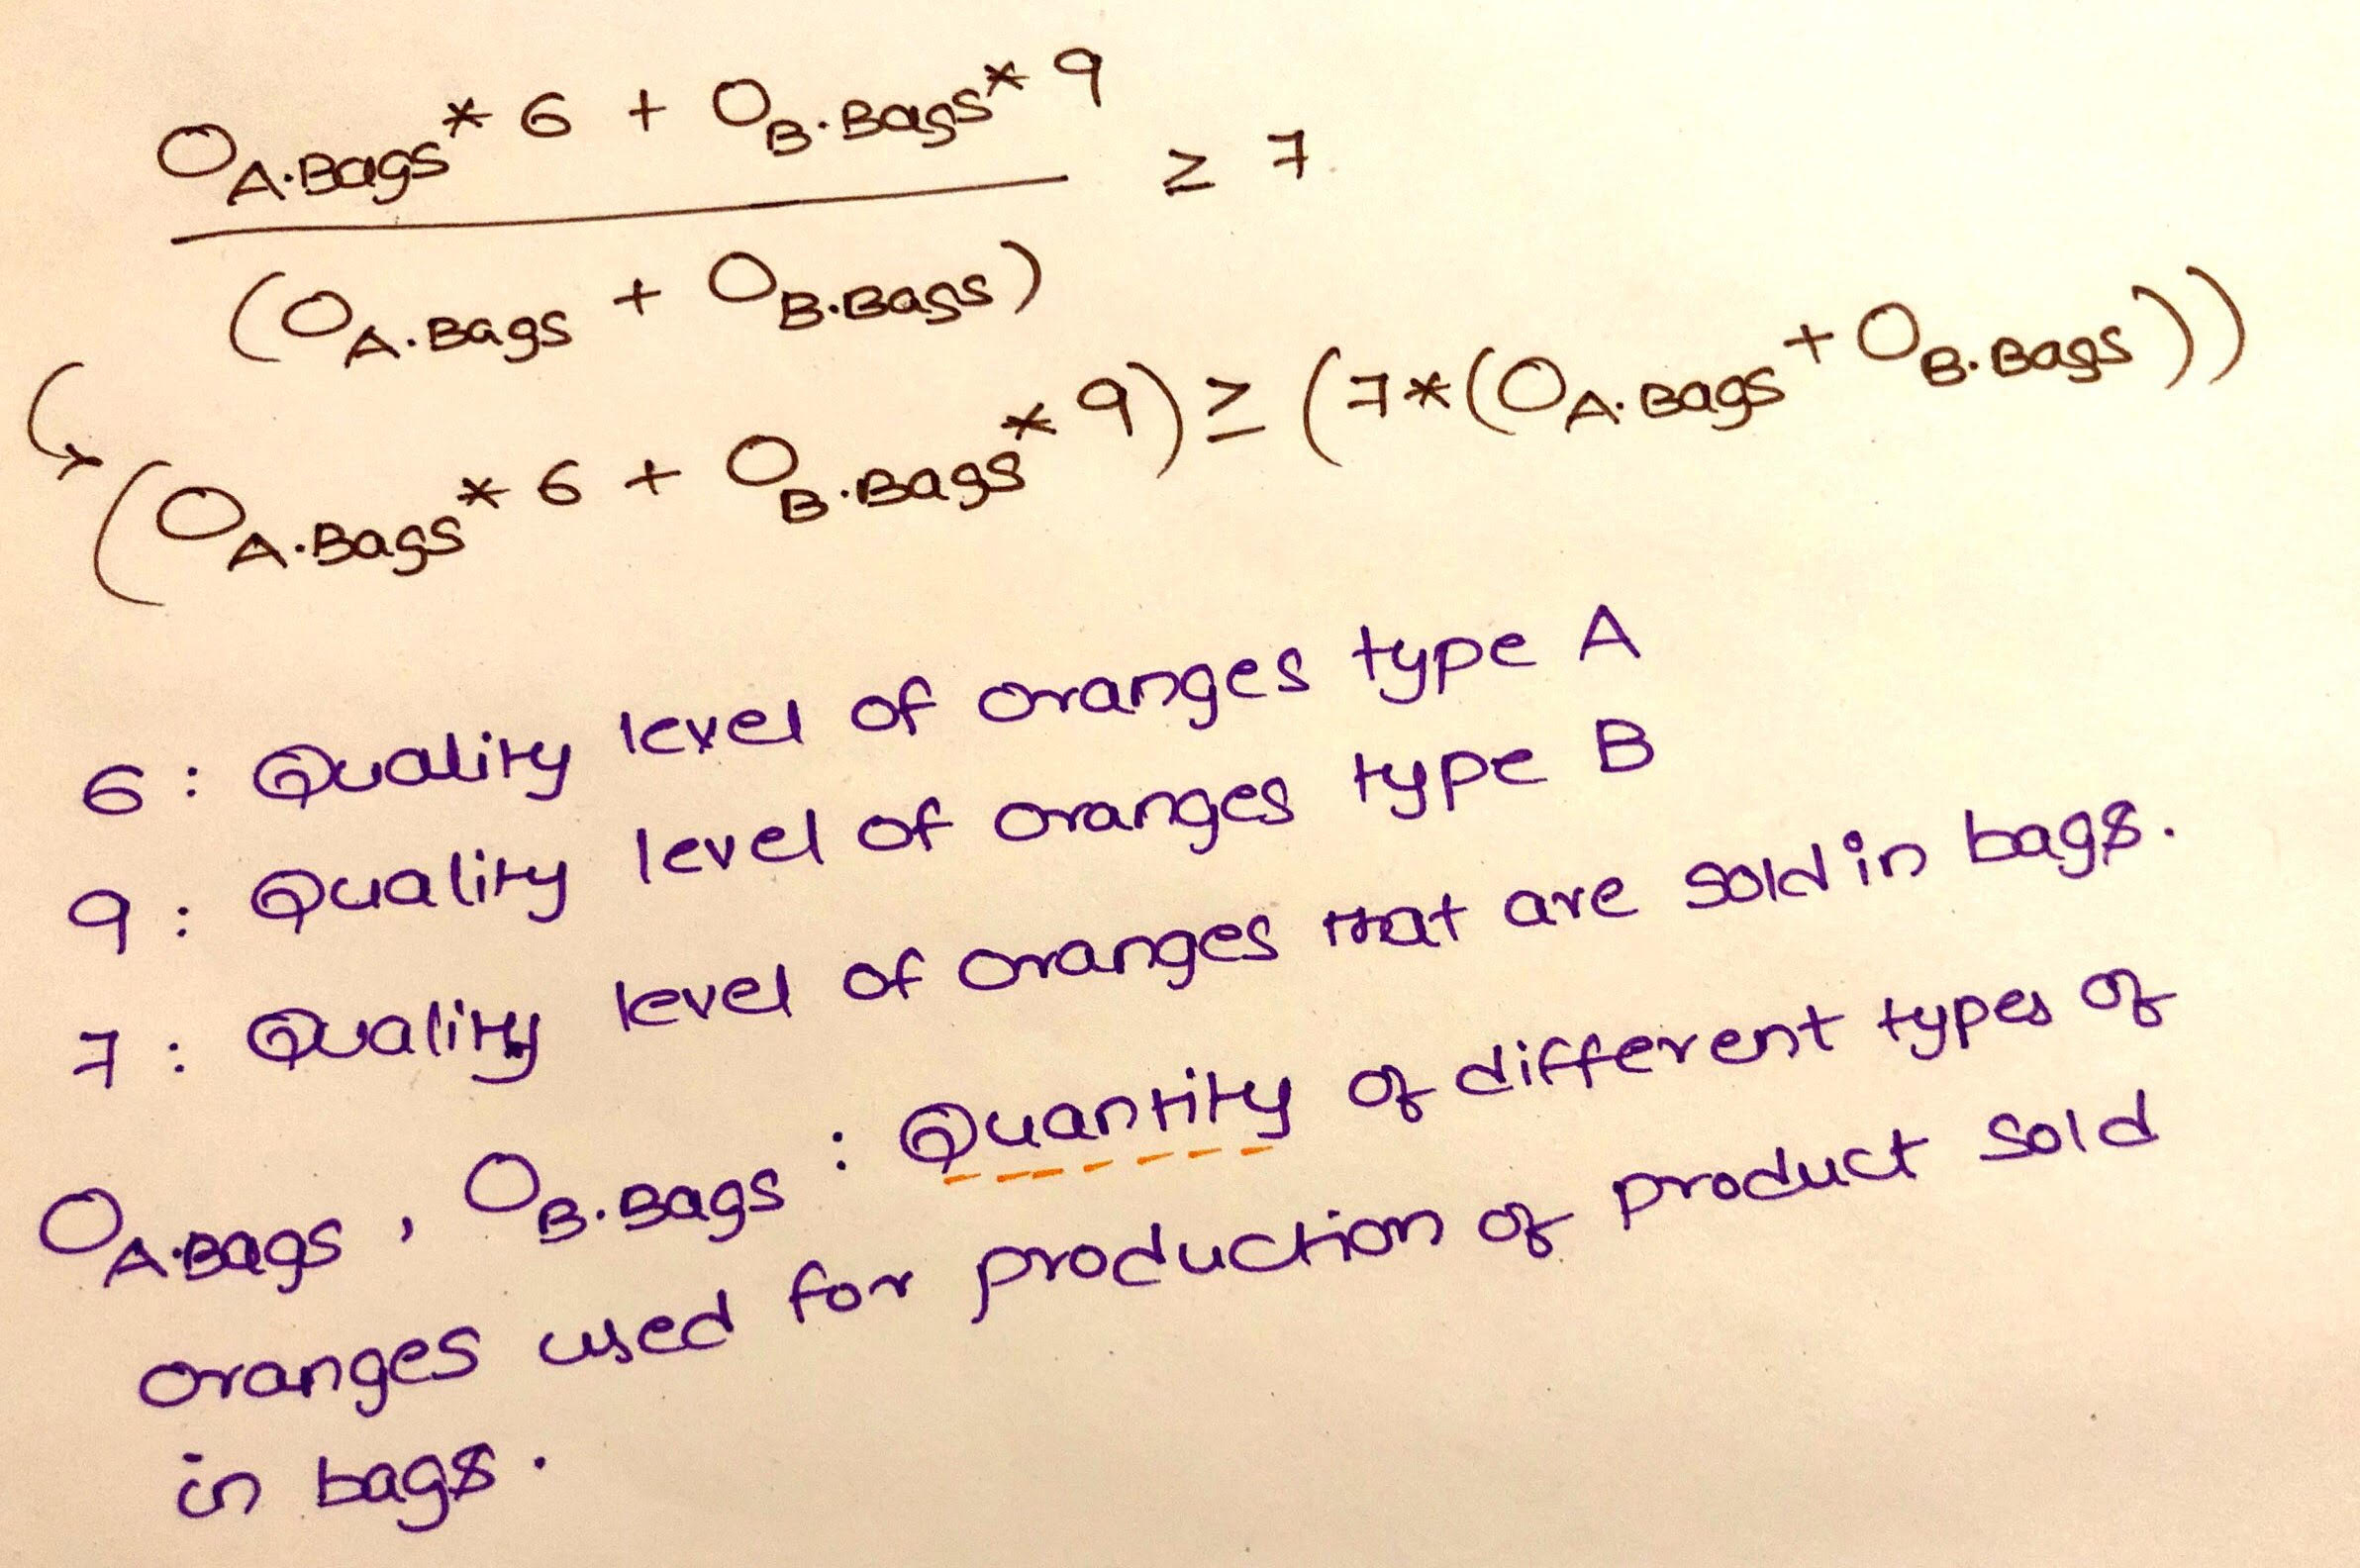 O_A.Bags * 6 + O_B.Bags * 9 ≥ 7
(O_A.Bags + O_B.Bags)
(O_A.Bags * 6 + O_B.Bags * 9) ≥ (7 * (O_A.Bags + O_B.Bags))
6 : Quality level of oranges type A
9 : Quality level of oranges type B
7 : Quality level of oranges that are sold in bags.
O_A.Bags , O_B.Bags : Quantity of different types of
oranges used for production of product sold
in bags.